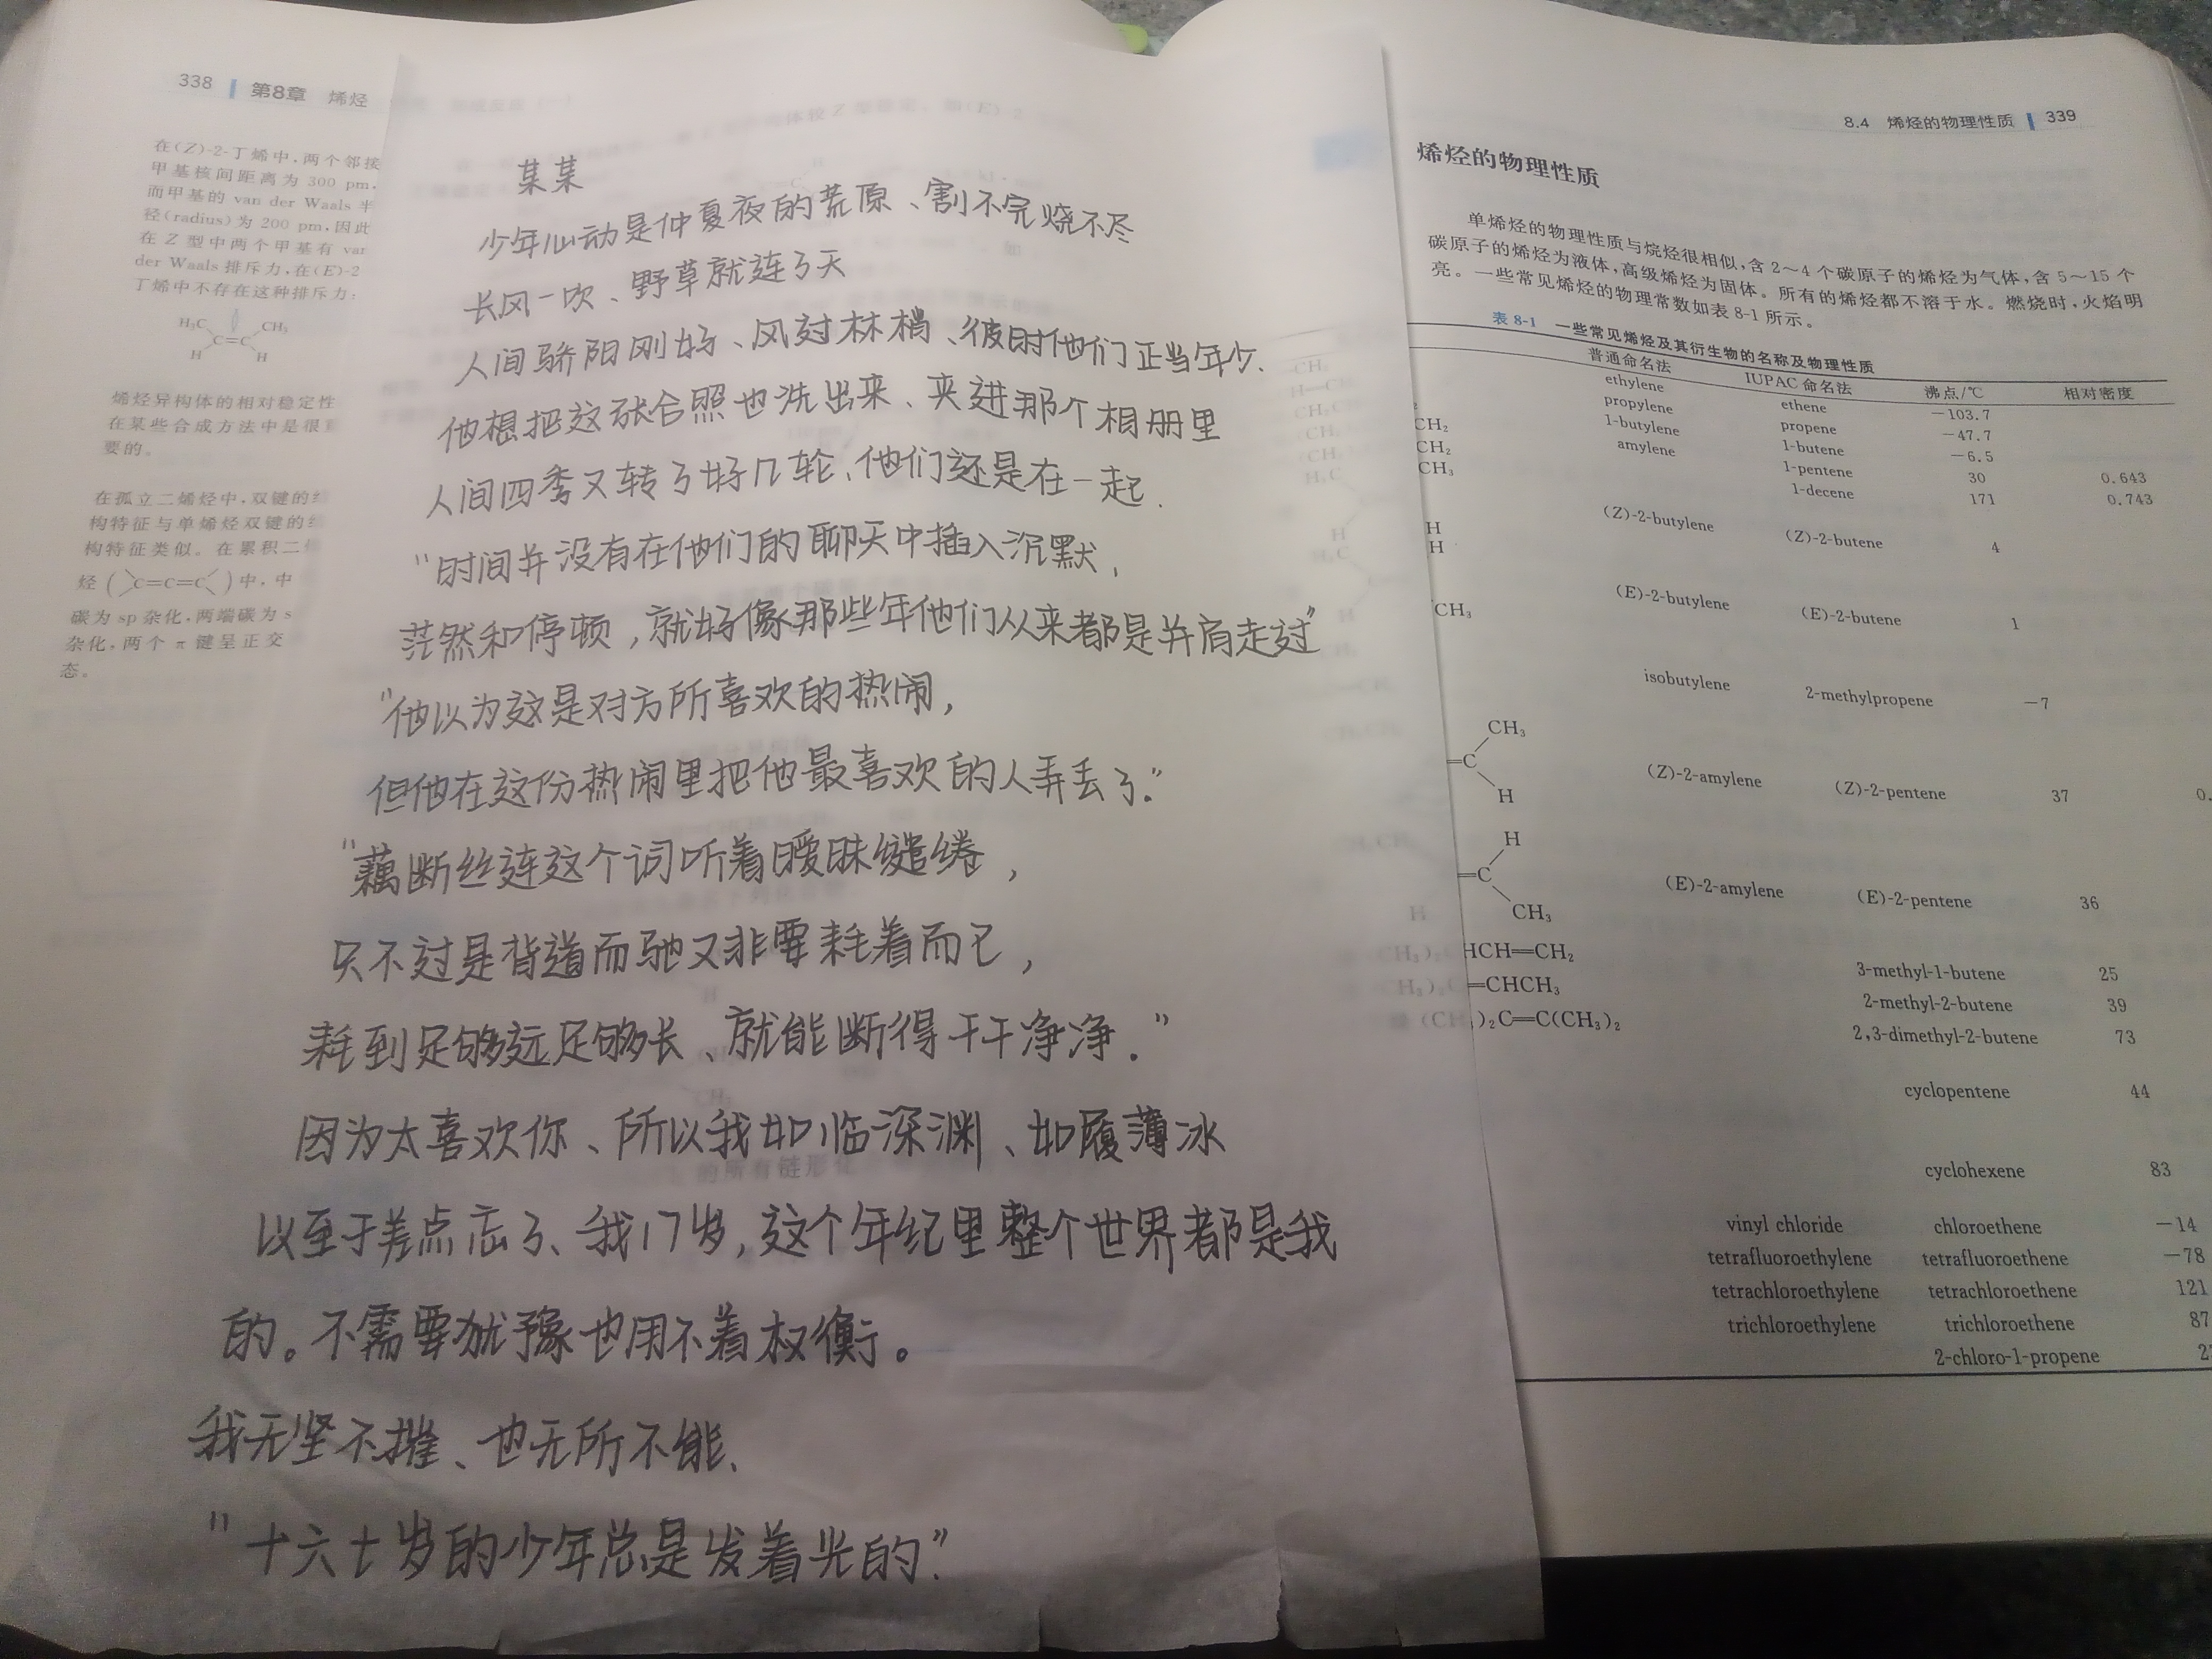 338 第8章 烯烃
在(Z)-2-丁烯中,两个邻接
甲基核间距离为 300 pm,
而甲基的 van der Waals 半
径(radius)为 200 pm,因此
在 Z 型中两个甲基有 van
der Waals 排斥力,在(E)-2
丁烯中不存在这种排斥力:
H₃C CH₃
C=C
H H
烯烃异构体的相对稳定性
在某些合成方法中是很重
要的。
在孤立二烯烃中,双键的结
构特征与单烯烃双键的结
构特征类似。在累积二烯
烃( C=C=C )中,中
碳为 sp 杂化,两端碳为 s
杂化,两个 π 键呈正交
态。
某某
少年心动是仲夏夜的荒原、割不完烧不尽
长风一吹、野草就连了天
人间骄阳刚好、风过林梢、彼时他们正当年少.
他想把这张合照也洗出来、夹进那个相册里
人间四季又转了好几轮、他们还是在一起.
"时间并没有在他们的聊天中插入沉默,
茫然和停顿,就好像那些年他们从来都是并肩走过"
"他以为这是对方所喜欢的热闹,
但他在这份热闹里把他最喜欢的人弄丢了."
"藕断丝连这个词听着暧昧缱绻,
只不过是背道而驰又非要耗着而已,
耗到足够远足够长、就能断得干干净净."
因为太喜欢你、所以我如临深渊、如履薄冰
以至于差点忘了、我17岁,这个年纪里整个世界都是我
的。不需要犹豫也用不着权衡。
我无坚不摧、也无所不能、
"十六七岁的少年总是发着光的."
8.4 烯烃的物理性质 339
烯烃的物理性质
单烯烃的物理性质与烷烃很相似,含 2~4 个碳原子的烯烃为气体,含 5~15 个
碳原子的烯烃为液体,高级烯烃为固体。所有的烯烃都不溶于水。燃烧时,火焰明
亮。一些常见烯烃的物理常数如表 8-1 所示。
表 8-1 一些常见烯烃及其衍生物的名称及物理性质
普通命名法 IUPAC 命名法 沸点/℃ 相对密度
ethylene ethene −103.7
propylene propene −47.7
CH₂ 1-butylene 1-butene −6.5
CH₂ amylene 1-pentene 30 0.643
CH₃ 1-decene 171 0.743
H (Z)-2-butylene (Z)-2-butene 4
H
CH₃ (E)-2-butylene (E)-2-butene 1
isobutylene 2-methylpropene −7
CH₃
=C (Z)-2-amylene (Z)-2-pentene 37 0.
H
H
=C (E)-2-amylene (E)-2-pentene 36
CH₃
HCH=CH₂ 3-methyl-1-butene 25
=CHCH₃ 2-methyl-2-butene 39
)₂C=C(CH₃)₂ 2,3-dimethyl-2-butene 73
cyclopentene 44
cyclohexene 83
vinyl chloride chloroethene −14
tetrafluoroethylene tetrafluoroethene −78
tetrachloroethylene tetrachloroethene 121
trichloroethylene trichloroethene 87
2-chloro-1-propene 2